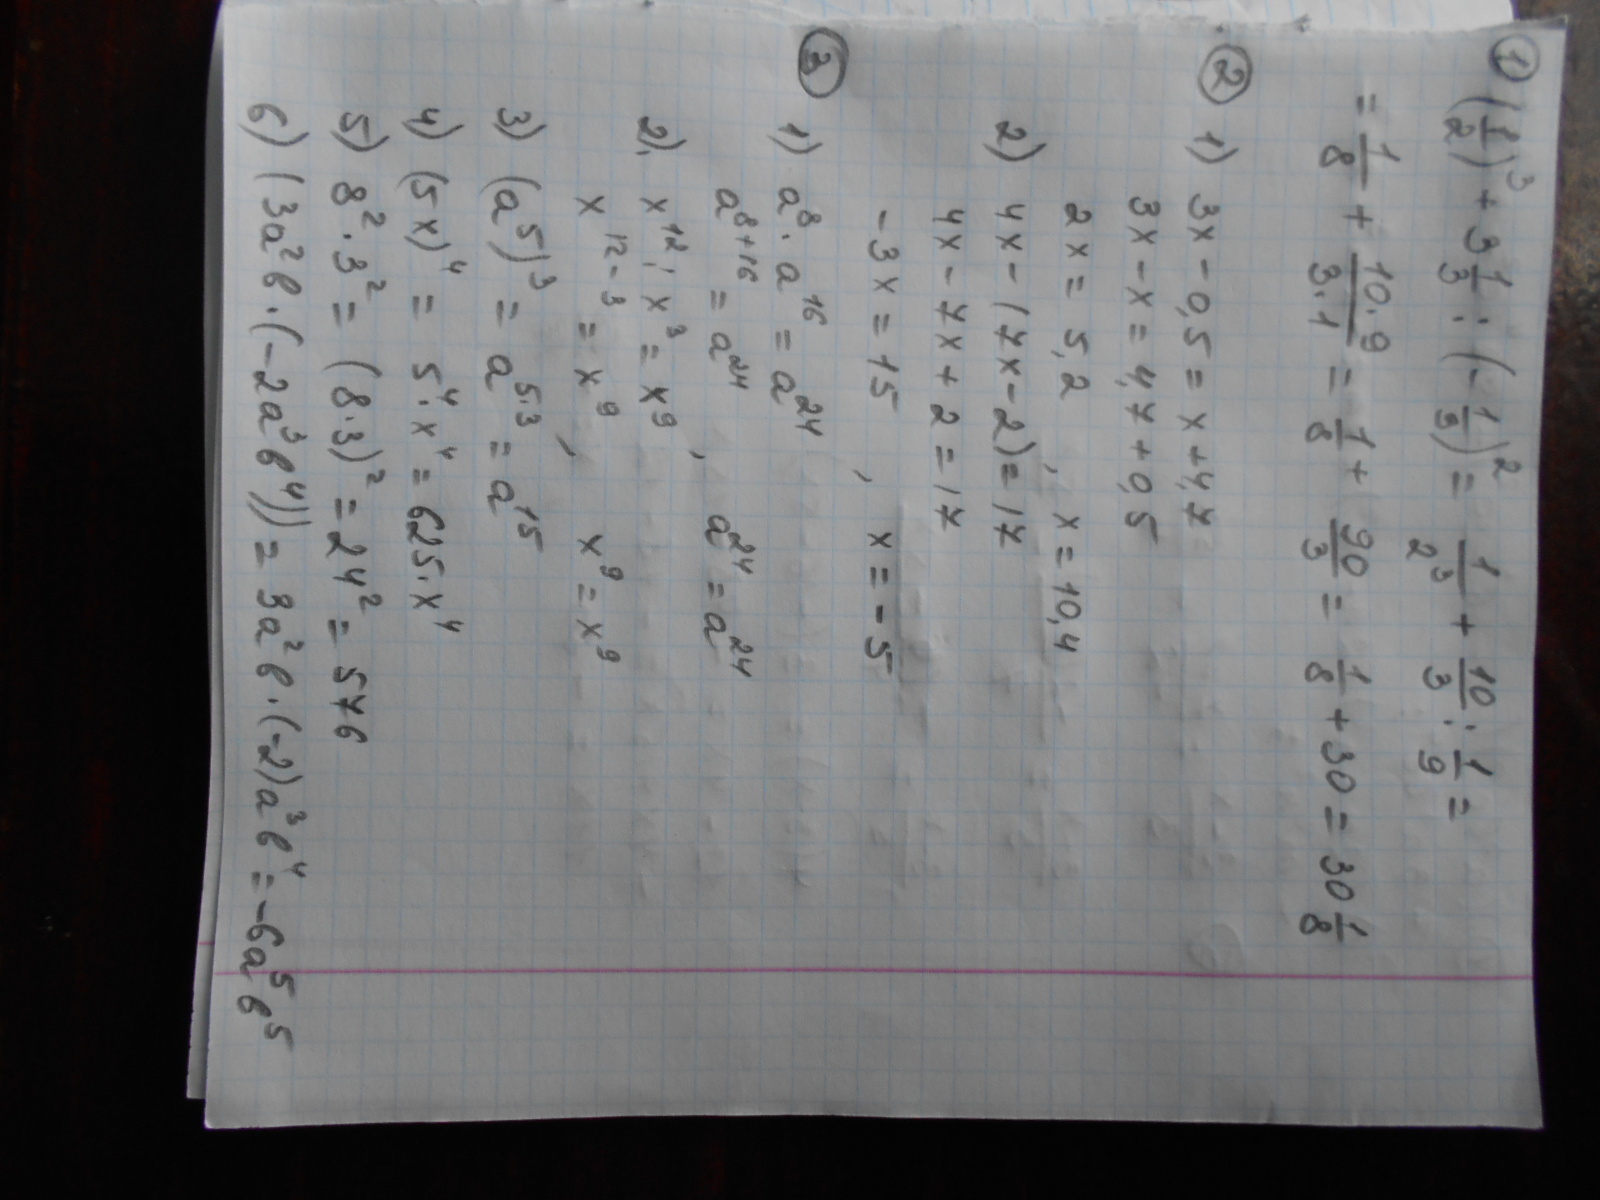 ① (1/2)³ + 3 1/3 : (-1/3)² = 1/2³ + 10/3 : 1/9 =
= 1/8 + 10·9/3·1 = 1/8 + 90/3 = 1/8 + 30 = 30 1/8
② 1) 3x - 0,5 = x + 4,7
3x - x = 4,7 + 0,5
2x = 5,2 , x = 10,4
2) 4x - (7x - 2) = 17
4x - 7x + 2 = 17
-3x = 15 , x = -5
③
1) a⁸ · a¹⁶ = a²⁴
a⁸⁺¹⁶ = a²⁴ , a²⁴ = a²⁴
2) x¹² : x³ = x⁹
x¹²⁻³ = x⁹ , x⁹ = x⁹
3) (a⁵)³ = a⁵·³ = a¹⁵
4) (5x)⁴ = 5⁴ · x⁴ = 625 · x⁴
5) 8² · 3² = (8·3)² = 24² = 576
6) (3a²b · (-2a³b⁴)) = 3a²b · (-2)a³b⁴ = -6a⁵b⁵